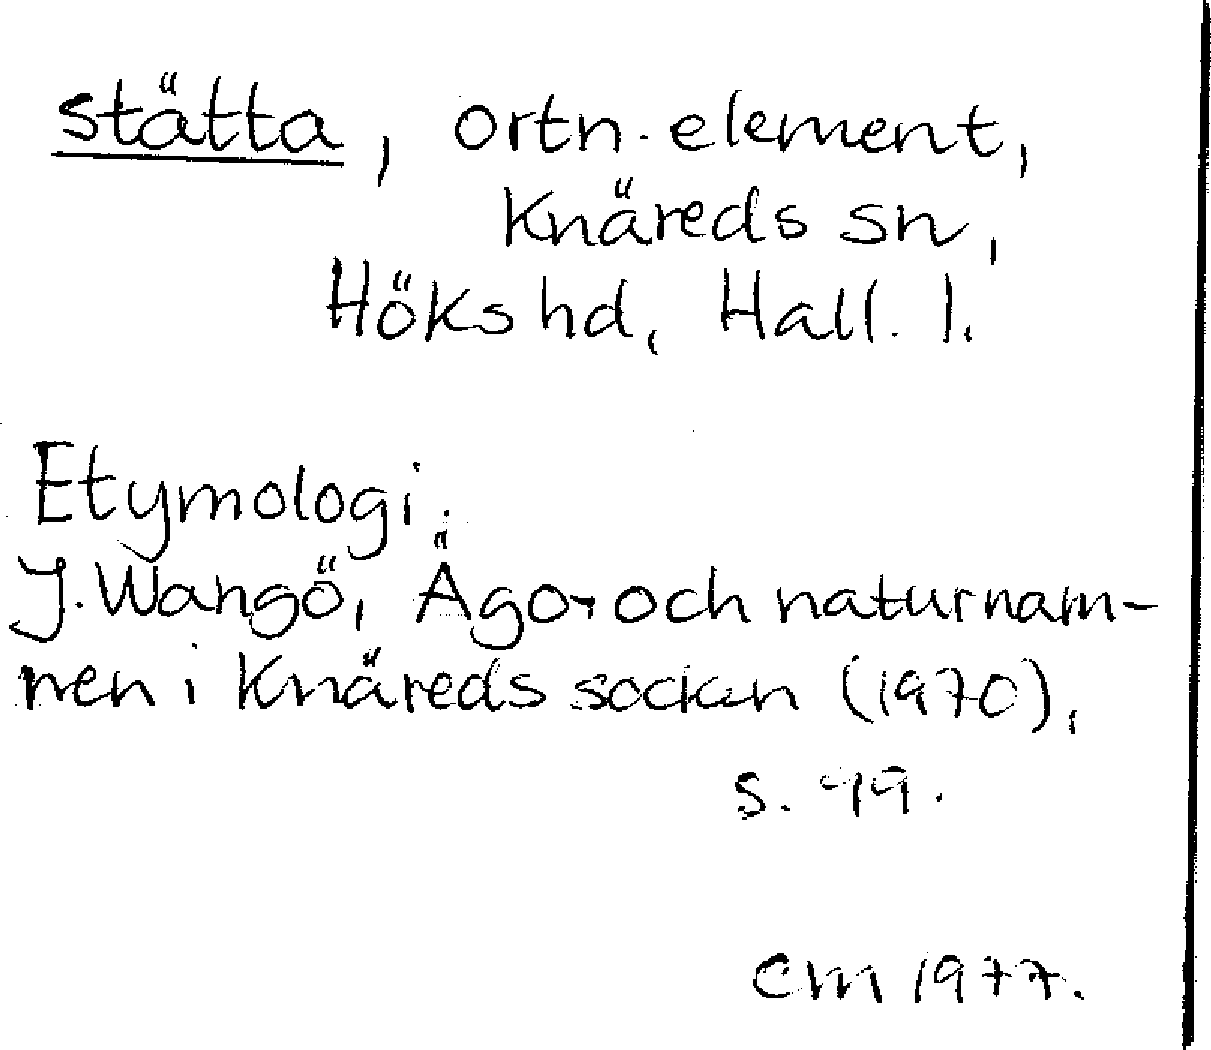 stätta, ortn.element,
Knäreds sn,
Höks hd, Hall. l.
Etymologi.
J. Wangö, Ägo- och naturnam-
nen i Knäreds socken (1970),
s. 49.
CM 1977.